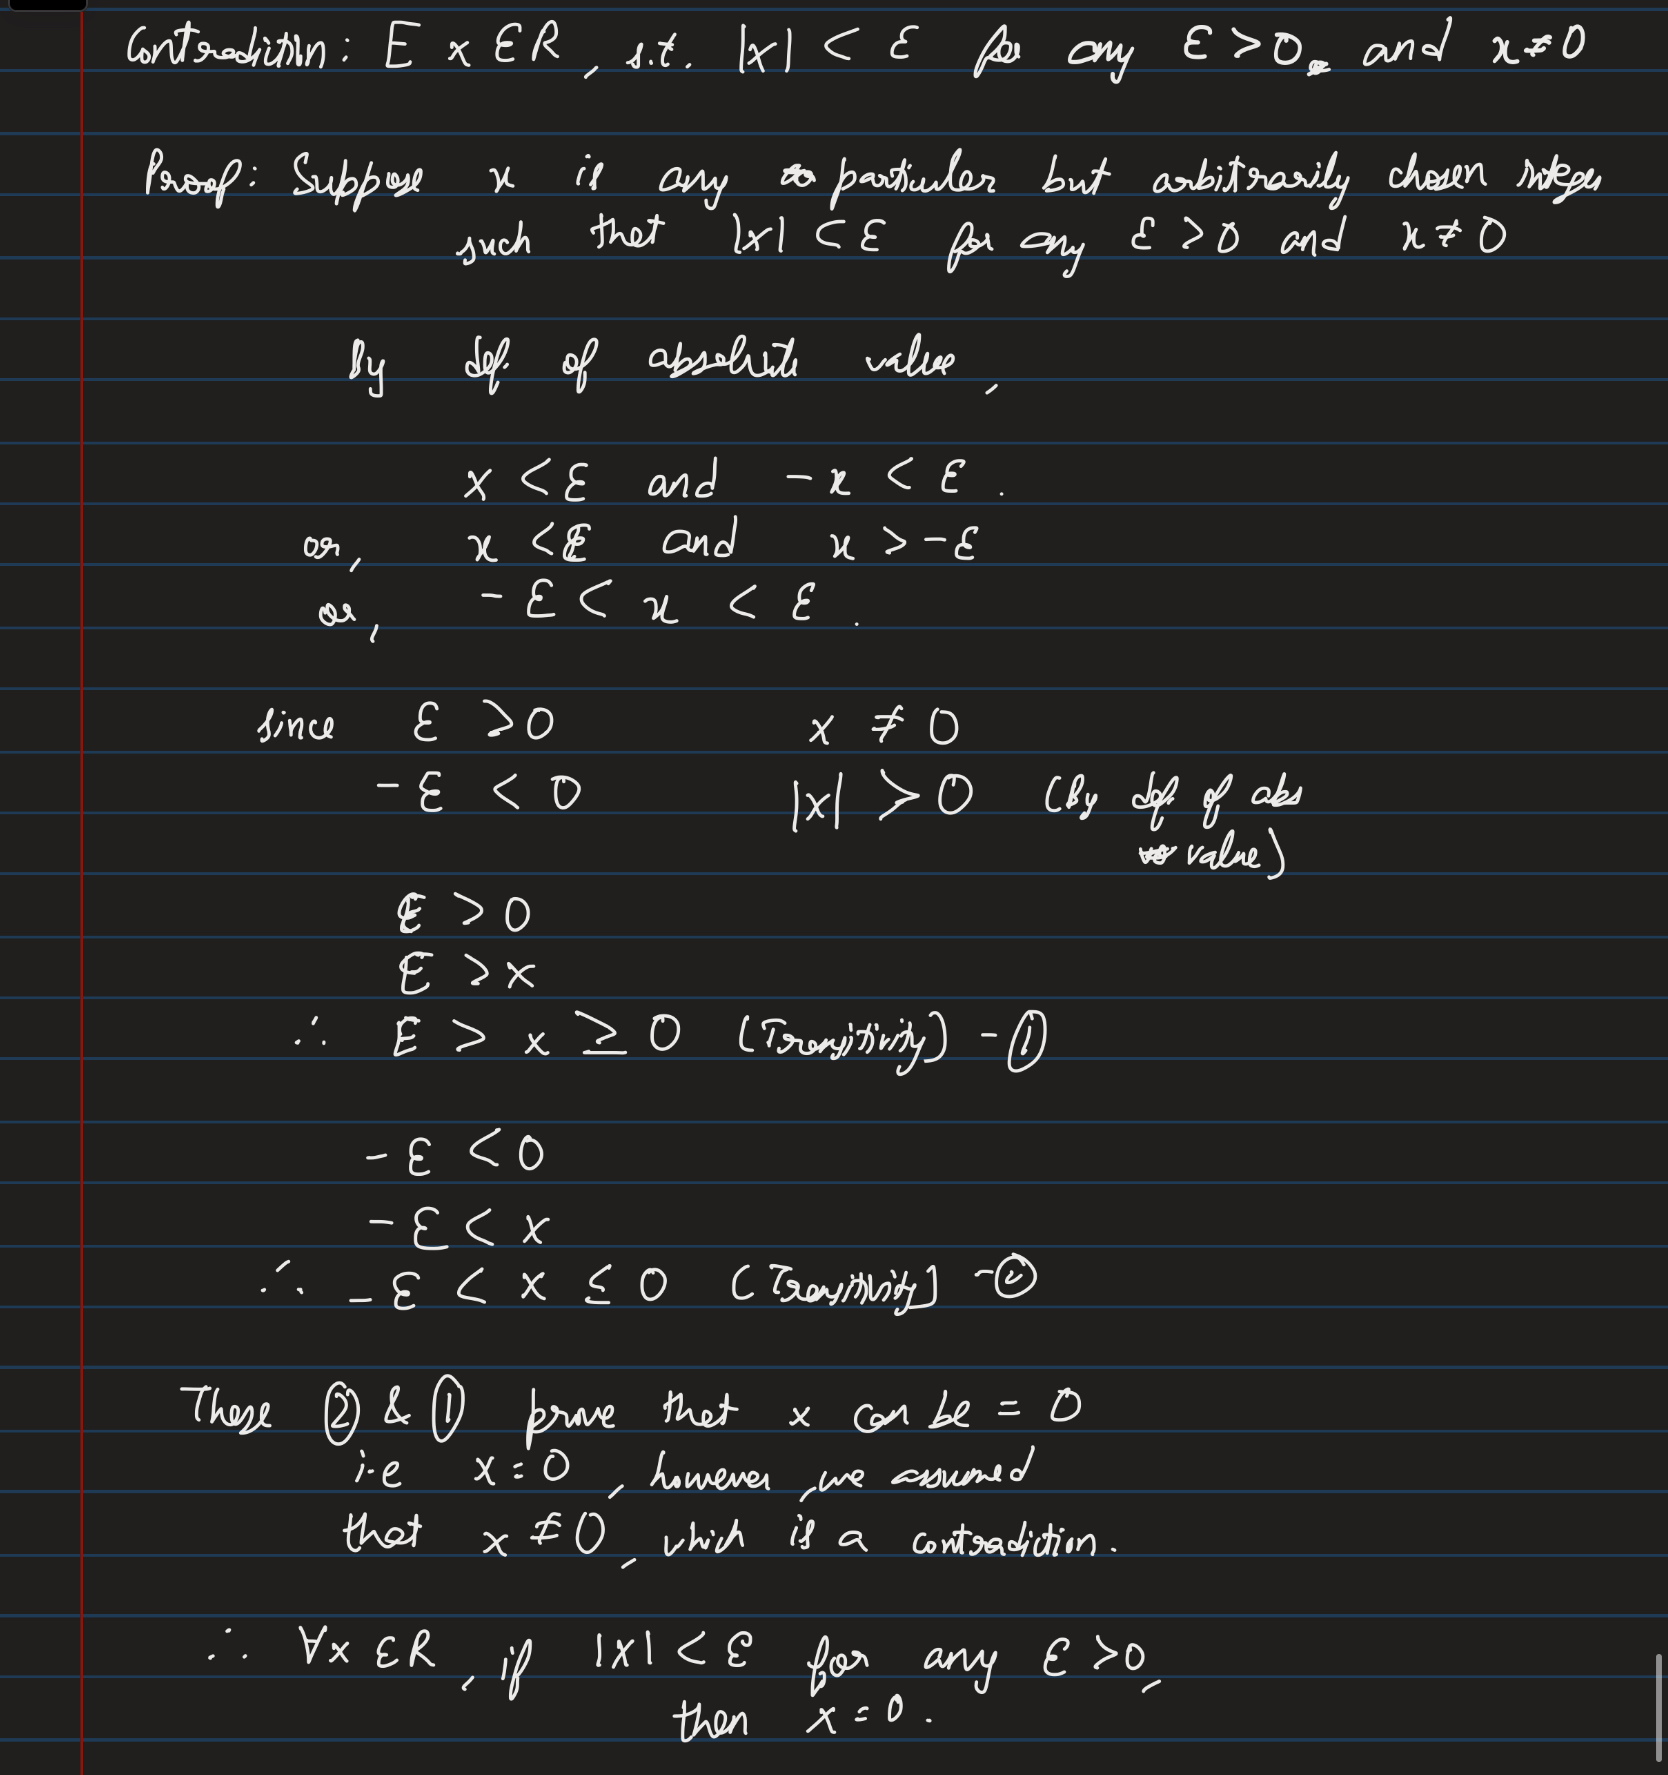 Contradiction: E x ∈ R, s.t. |x| < ε for any ε > 0 and x ≠ 0
Proof: Suppose x is any particular but arbitrarily chosen integer
such that |x| < ε for any ε > 0 and x ≠ 0
By def. of absolute value,
x < ε and -x < ε.
or, x < ε and x > -ε
or, -ε < x < ε.
since ε > 0 x ≠ 0
-ε < 0 |x| > 0 (By def. of abs
value)
ε > 0
ε > x
∴ ε > x ≥ 0 (Transitivity) - ①
-ε < 0
-ε < x
∴ -ε < x ≤ 0 (Transitivity) - ②
These ② & ① prove that x can be = 0
i.e x = 0, however, we assumed
that x ≠ 0, which is a contradiction.
∴ ∀x ∈ R, if |x| < ε for any ε > 0,
then x = 0.